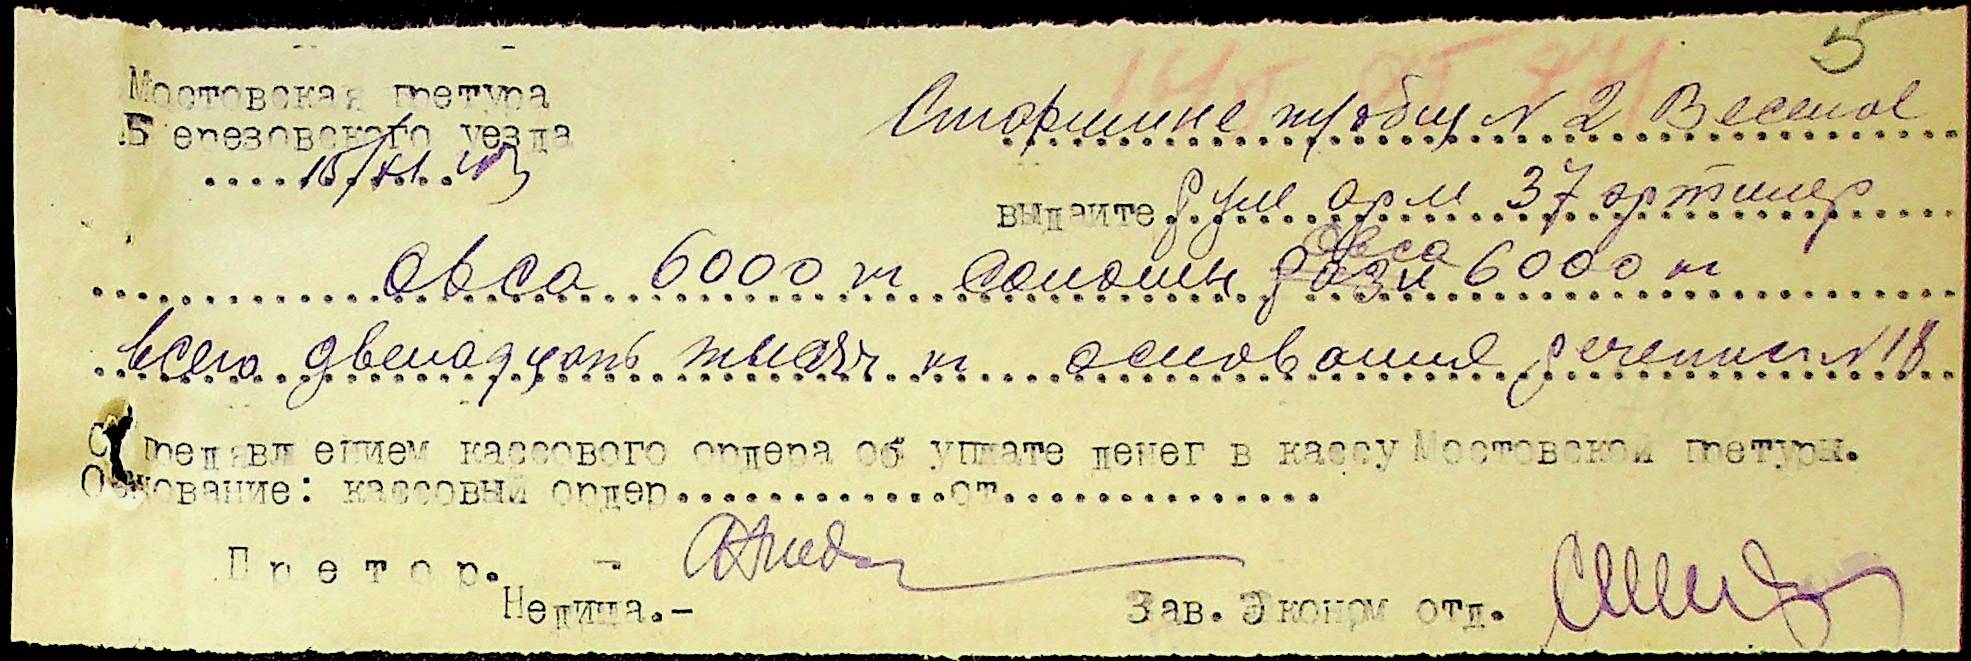 5
Мостовская претура
Березовского уезда
15/XI 43
Старшине трудобщ N 2 Веселое
выдайте рум арм 37 артилер
овса 6000 кг соломы овса 6000 кг
всего двенадцать тысяч кг основание N 18
С предявлением кассового ордера об уплате денег в кассу Мостовской претуры.
Основание: кассовый ордер.............от...............
Претор. -
Недица.-
Зав. Эконом отд.